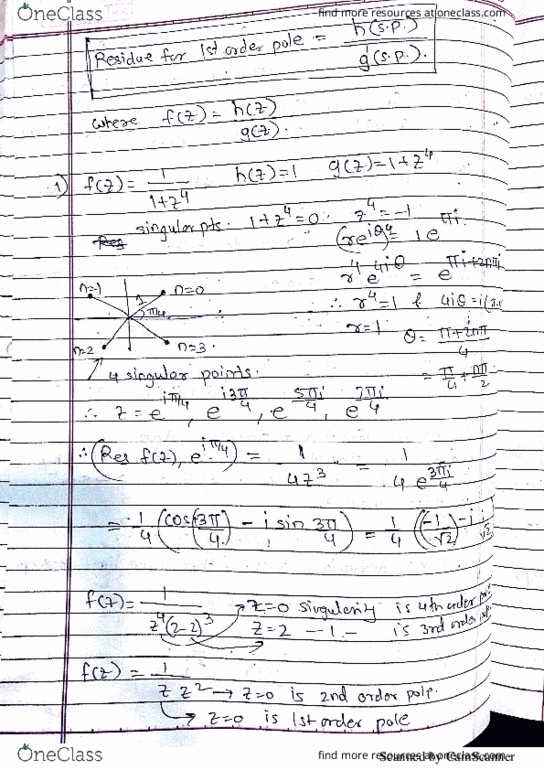 OneClass
find more resources at oneclass.com
Residue for 1st order pole = h(s.p.) / g'(s.p.).
where f(z) = h(z) / g(z).
1) f(z) = 1 / 1+z⁴ h(z)=1 g(z)=1+z⁴
singular pts. 1+z⁴=0. z⁴=-1
(re^iθ)⁴ = 1e^πi
r⁴ e^4iθ = e^πi+2nπi
∴ r⁴=1 & 4iθ = i(
r=1 θ = π+2nπ / 4
= π/4 + nπ/2
n=1 n=0
1 π/4
n=2 n=3.
4 singular points.
∴ z = e^iπ/4, e^i3π/4, e^5πi/4, e^7πi/4
∴ (Res f(z), e^iπ/4) = 1 / 4z³ = 1 / 4 e^3πi/4
= 1/4 (cos(3π/4) - i sin 3π/4) = 1/4 (-1/√2 - i 1/√2
f(z) = 1 / z⁴(2-2)³ → z=0 singularity is 4th order
z=2 -1- is 3rd order
f(z) = 1 / z z² → z=0 is 2nd order pole.
→ z=0 is 1st order pole
OneClass
find more resources at oneclass.com
Scanned by CamScanner